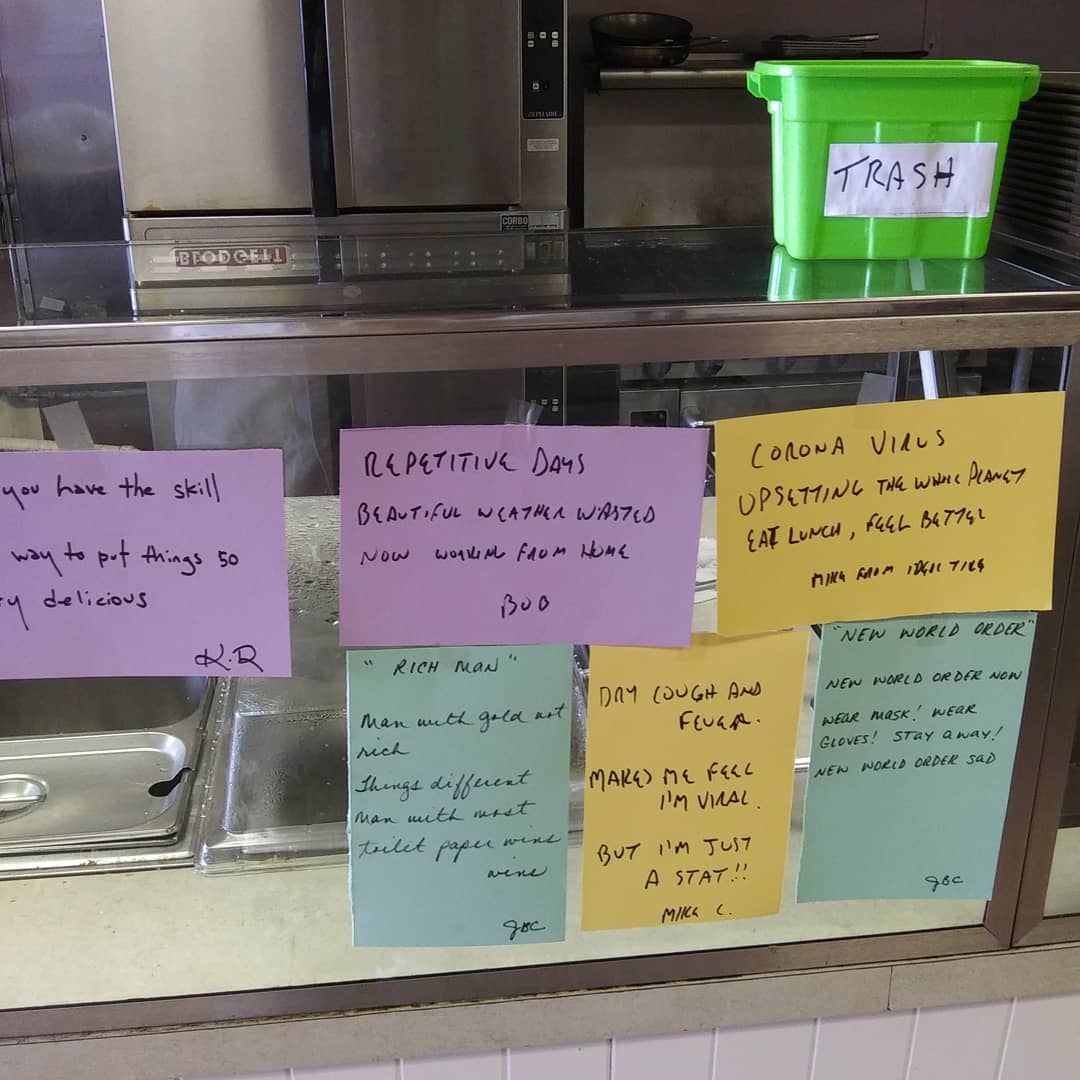 ZEPHAIRE
COMBO
BLODGETT
TRASH
you have the skill
way to put things so
y delicious
K.D
REPETITIVE DAYS
BEAUTIFUL WEATHER WASTED
NOW WORKING FROM HOME
BOB
CORONA VIRUS
UPSETTING THE WHOLE PLANET
EAT LUNCH, FEEL BETTER
MIKE FROM TIRE
"RICH MAN"
Man with gold not
rich
Things different
Man with most
toilet paper wins
wins
JBC
DRY COUGH AND
FEVER.
MAKES ME FEEL
I'M VIRAL.
BUT I'M JUST
A STAT!!
MIKE C.
"NEW WORLD ORDER"
NEW WORLD ORDER NOW
WEAR MASK! WEAR
GLOVES! STAY AWAY!
NEW WORLD ORDER SAD
JBC